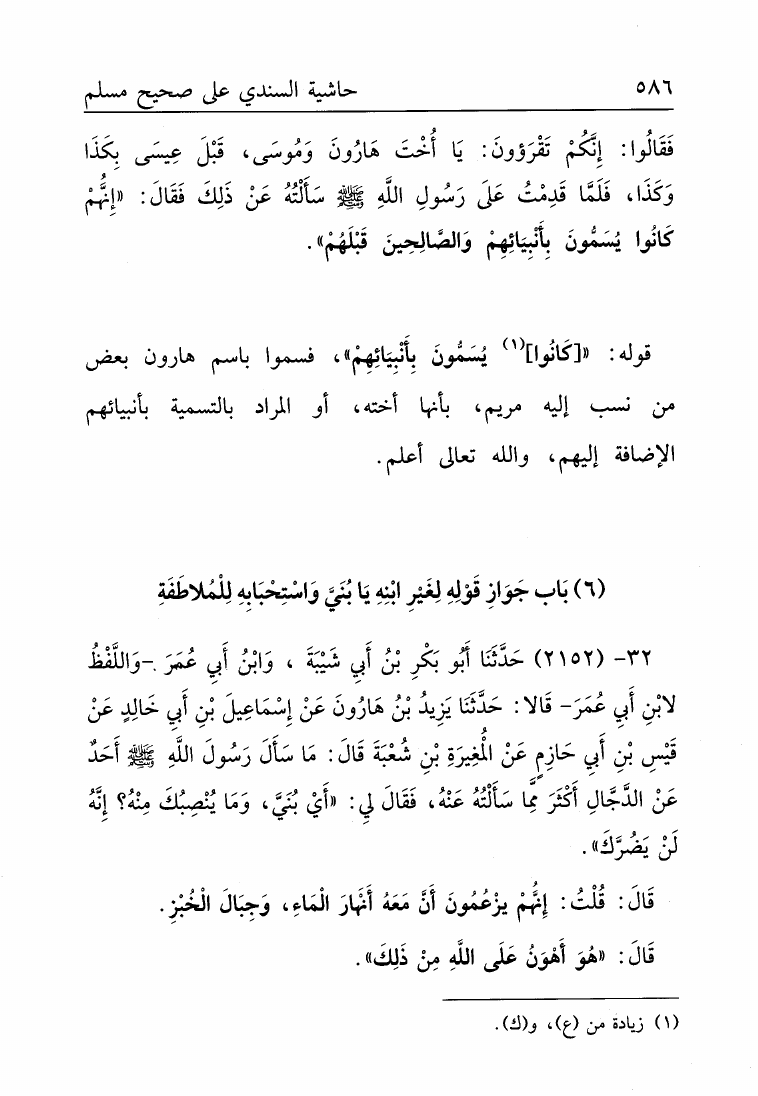 ٥٨٦ حاشية السندي على صحيح مسلم
فَقَالُوا: إِنَّكُمْ تَقْرَؤونَ: يَا أُخْتَ هَارُونَ وَمُوسَى، قَبْلَ عِيسَى بِكَذَا
وَكَذَا، فَلَمَّا قَدِمْتُ عَلَى رَسُولِ اللَّهِ ﷺ سَأَلْتُهُ عَنْ ذَلِكَ فَقَالَ: «إِنَّهُمْ
كَانُوا يُسَمُّونَ بِأَنْبِيَائِهِمْ وَالصَّالِحِينَ قَبْلَهُمْ».
قوله: «[كَانُوا](١) يُسَمُّونَ بِأَنْبِيَائِهِمْ»، فسموا باسم هارون بعض
من نسب إليه مريم، بأنها أخته، أو المراد بالتسمية بأنبيائهم
الإضافة إليهم، والله تعالى أعلم.
(٦) بَاب جَوَازِ قَوْلِهِ لِغَيْرِ ابْنِهِ يَا بُنَيَّ وَاسْتِحْبَابِهِ لِلْمُلاطَفَةِ
٣٢- (٢١٥٢) حَدَّثَنَا أَبُو بَكْرِ بْنُ أَبِي شَيْبَةَ ، وَابْنُ أَبِي عُمَرَ -وَاللَّفْظُ
لابْنِ أَبِي عُمَرَ- قَالا: حَدَّثَنَا يَزِيدُ بْنُ هَارُونَ عَنْ إِسْمَاعِيلَ بْنِ أَبِي خَالِدٍ عَنْ
قَيْسِ بْنِ أَبِي حَازِمٍ عَنْ الْمُغِيرَةِ بْنِ شُعْبَةَ قَالَ: مَا سَأَلَ رَسُولَ اللَّهِ ﷺ أَحَدٌ
عَنْ الدَّجَّالِ أَكْثَرَ مِمَّا سَأَلْتُهُ عَنْهُ، فَقَالَ لِي: «أَيْ بُنَيَّ، وَمَا يُنْصِبُكَ مِنْهُ؟ إِنَّهُ
لَنْ يَضُرَّكَ».
قَالَ: قُلْتُ: إِنَّهُمْ يَزْعُمُونَ أَنَّ مَعَهُ أَنْهَارَ الْمَاءِ، وَجِبَالَ الْخُبْزِ.
قَالَ: «هُوَ أَهْوَنُ عَلَى اللَّهِ مِنْ ذَلِكَ».
(١) زيادة من (ع)، و(ك).